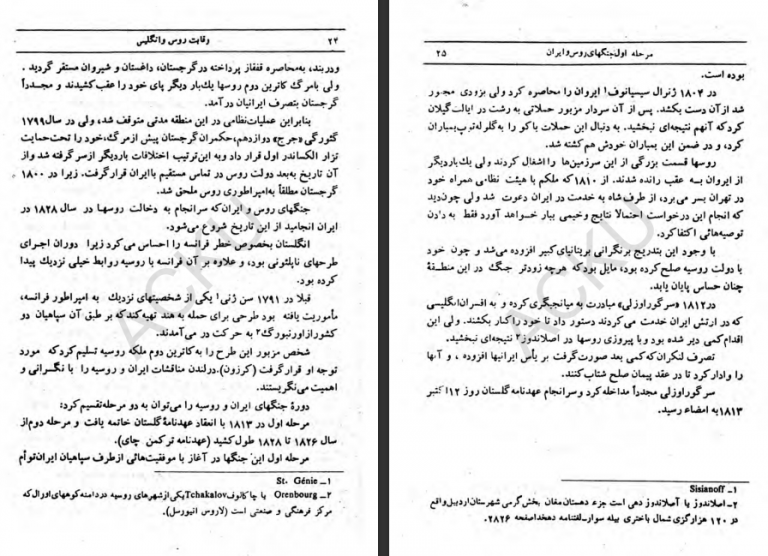 ۲۴ رقابت روس وانگلیس
ودربند، به‌محاصره قفقاز پرداخته درگرجستان، داغستان و شیروان مستقر گردید .
ولی بامرگ کاترین دوم روسها یك‌بار دیگر پای خود را عقب‌کشیدند و مجـدداً
گرجستان بتصرف ایرانیان درآمد.
بنابراین عملیات‌نظامی در این منطقه مدتی متوقف شد، ولی در سال۱۷۹۹
گئورگی «جرج» دوازدهم،حکمران گرجستان پیش ازمرگ،خود را تحت‌حمایت
تزار الکساندر اول قرار داد وبه این‌ترتیب اختلافات باردیگر ازسرگرفته شد واز
آن تاریخ به‌بعد دولت روس در تماس مستقیم باایران قرارگرفت. زیرا در ۱۸۰۰
گرجستان مطلقاً به‌امپراطوری روس ملحق شد.
جنگهای روس و ایران‌که سرانجام به دخالت روسهـا در سال ۱۸۲۸ در
ایران انجامید از این تاریخ شروع می‌شود.
انگلستان بخصوص خطر فرانسه را احساس می‌کرد زیرا دوران اجرای
طرحهای ناپلئونی بود، و علاوه بر آن فرانسه با روسیه روابط خیلی نزدیك پیدا
کرده بود.
قبلا در ۱۷۹۱ سن ژنی۱ یکی از شخصیتهای نزدیك به امپراطور فرانسه،
مأموریت یافته بود طرحی برای حمله به هند تهیه‌کندکه بر طبق آن سپاهیان دو
کشورازاورنبورگ۲ به حرکت در می‌آمدند.
شخص مزبور این طرح را به‌کاترین دوم ملکه روسیه تسلیم‌کردکه مورد
توجه او قرارگرفت (کرزون).درلندن مناقشات ایران و روسیه را با نگــرانی و
اهمیت می‌نگریستند.
دورهٔ جنگهای ایران و روسیه را می‌توان به دو مرحله‌تقسیم‌کرد:
مرحله اول در ۱۸۱۳ با انعقاد عهدنامهٔ‌گلستان خاتمه یافت و مرحله دوم‌از
سال ۱۸۲۶ تا ۱۸۲۸ طول‌کشید (عهدنامه ترکمن چای).
مرحله اول این جنگها در آغاز با موفقیت‌هائی ازطرف سپاهیان ایران‌توأم
۱ــ St. Génie
۲ــ Orenbourg یا چاکالوفTchakalovیکی‌ازشهرهای روسیه دردامنه‌کوههای‌اورال‌که
مرکز فرهنگی و صنعتی است (لاروس انیورسل).
مرحله اول‌جنگهای‌روس‌وایران ۲۵
بوده است.
در ۱۸۰۴ ژنرال سیسیانوف۱ ایروان را محاصره کرد ولی بزودی مجبور
شد ازآن دست بکشد. پس از آن سردار مزبور حملاتی به رشت در ایالت‌گیلان
کردکه آنهم نتیجه‌ای نبخشید. به دنبال این حملات باکو را به‌گلوله‌توپ‌بمباران
کرد، و در ضمن این بمباران خودش هم‌کشته شد.
روسها قسمت بزرگی از این سرزمین‌ها را اشغال کردند ولی یك‌باردیگر
از ایروان بـه عقب رانده شدند. از ۱۸۱۰که ملکم با هیئت نظامی همراه خود
در تهران بسر می‌برد، از طرف شاه به خدمت در ایران دعوت شد ولی چون‌دید
که انجام این درخواست احتمالاً نتایج وخیمی ببار خــواهد آورد فقط به دادن
توصیه‌هائی اکتفاکرد.
با وجود این بتدریج برنگرانی بریتانیای‌کبیر افزوده می‌شد و چون خود
با دولت روسیه صلح‌کرده بود، مایل بودکه هرچه زودتر جنگ در این منطقـهٔ
چنان حساس پایان یابد.
در۱۸۱۲ «سرگوراوزلی» مبادرت به میانجیگری‌کرده و به افسران‌انگلیسی
که در ارتش ایران خدمت می‌کردند دستور داد تا خود راکنار بکشند. ولی این
اقدام‌کمی دیر شده بود وبا پیروزی روسها در اصلاندوز۲ نتیجه‌ای نبخشید.
تصرف لنکران‌که‌کمی بعد صورت‌گرفت بر یأس ایرانیها افزوده ، و آنها
را وادارکرد تا در عقد پیمان صلح شتاب‌کنند.
سرگوراوزلی مجدداً مداخله‌کرد وسرانجام عهدنامه‌گلستان روز ۱۲ اکتبر
۱۸۱۳ به امضاء رسید.
۱ــ Sisianoff
۲ــ اصلاندوز یا آصلاندوز دهی است جزء دهستان‌مغان بخش‌گرمی شهرستان‌اردبیل‌واقع
در ۱۲۰ هزارگزی شمال باختری بیله سوارــ‌لغتنامه دهخداصفحه ۲۸۲۶.
ACKU
ACKU